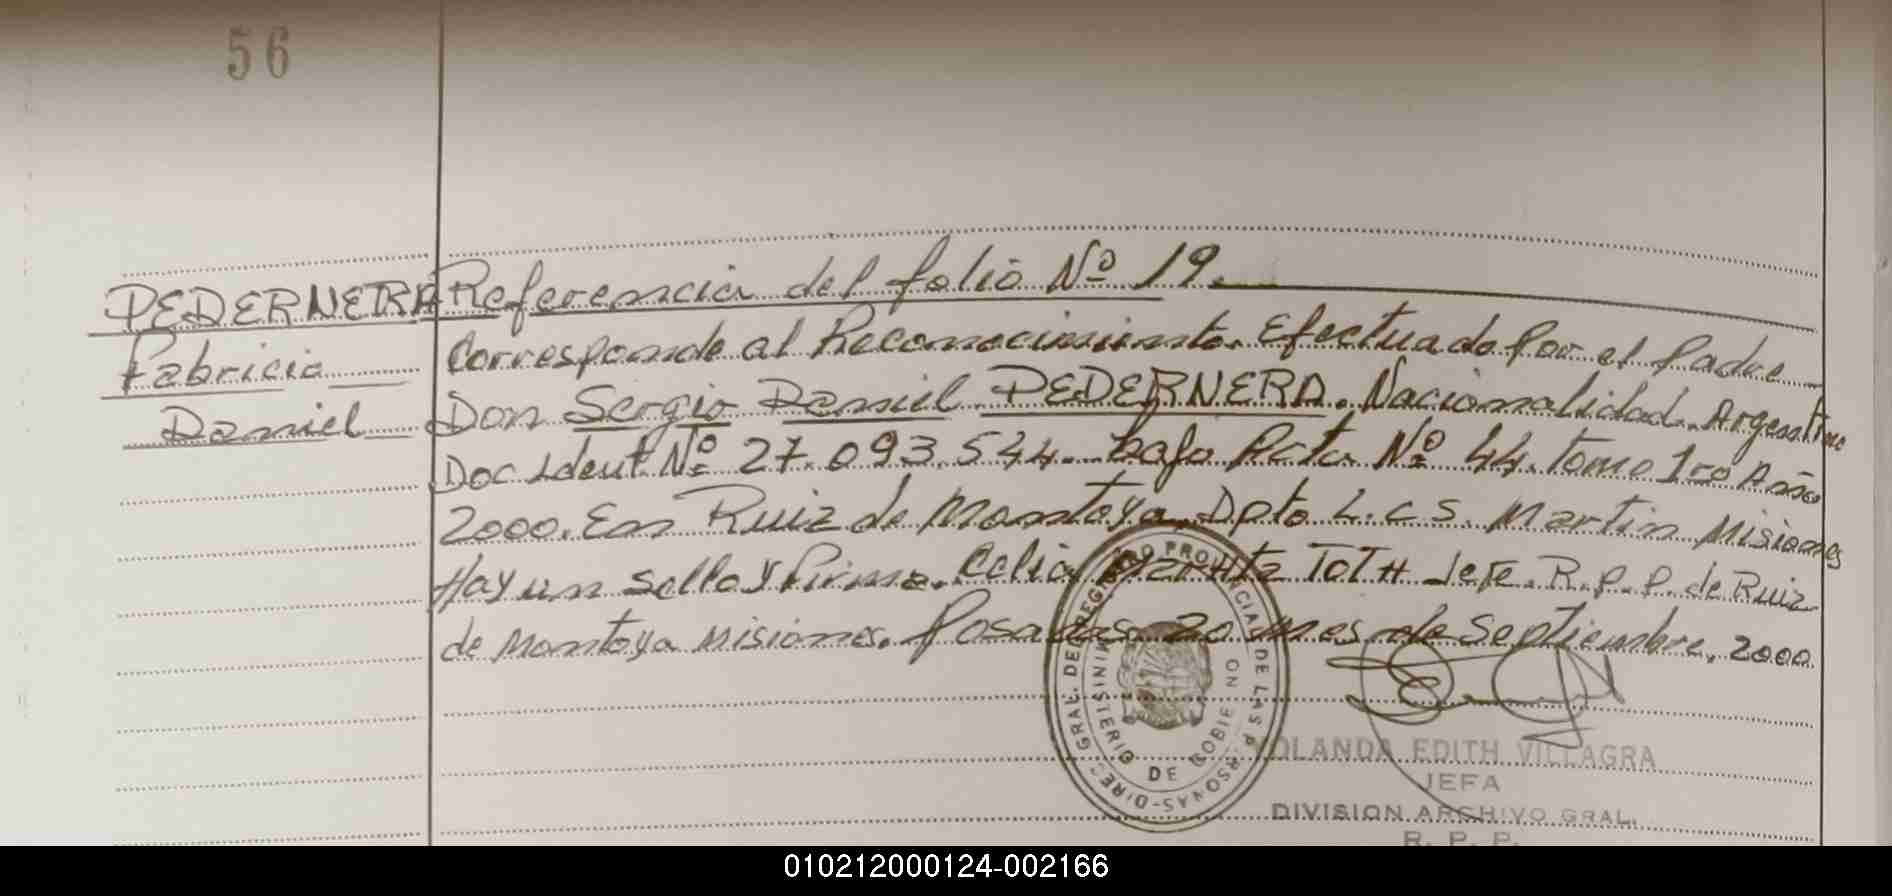 56
PEDERNERA Referencia del folio Nº 19.
Fabricio Corresponde al Reconocimiento. Efectuado Por el Padre
Daniel Don Sergio Daniel PEDERNERA. Nacionalidad. Argentino
Doc Ident Nº 27.093.544. bajo Acta Nº 44. tomo 1ro Año
2000. En Ruiz de Montoya. Dpto L. c S. Martin Misiones
Hay un sello y Firma. Celia TOTH Jefe. R. p. p. de Ruiz
de Montoya Misiones. Posadas 20 mes de Septiembre, 2000
DIREC. GRAL. DE REGISTRO PROVINCIAL DE LAS PERSONAS
MINISTERIO DE GOBIERNO
YOLANDA EDITH VILLAGRA
JEFA
DIVISION ARCHIVO GRAL.
R. P. P.
010212000124-002166